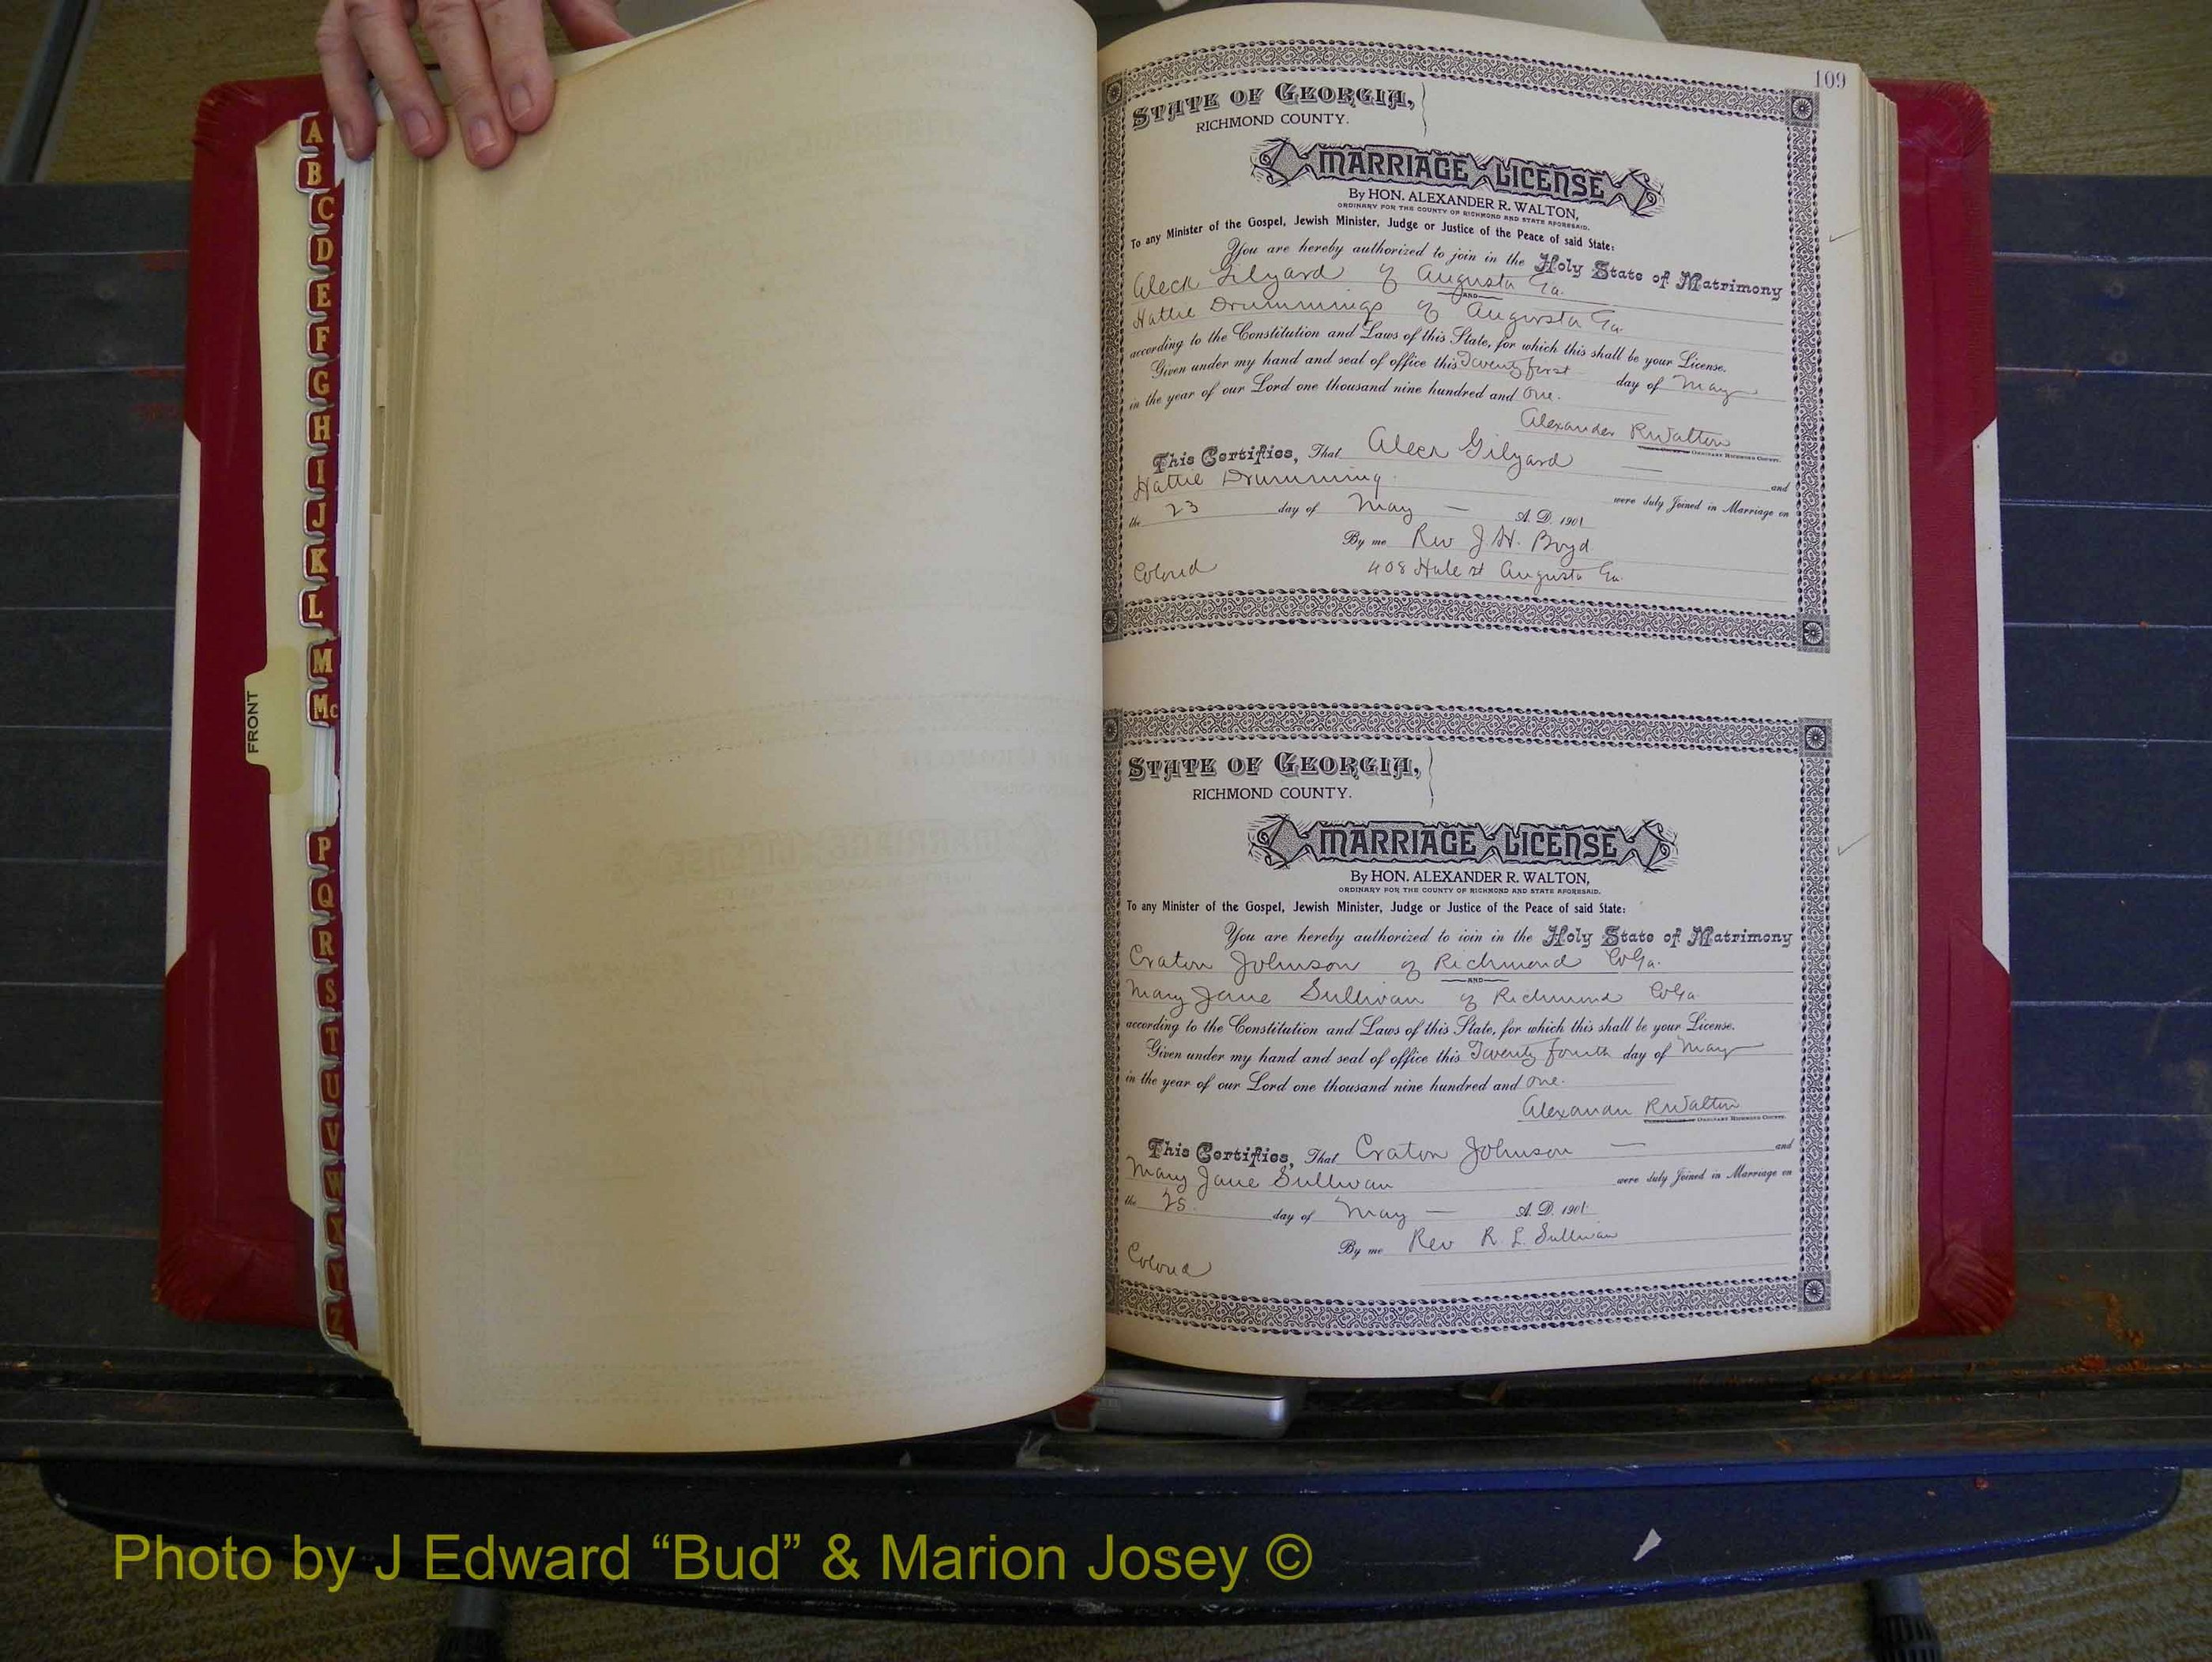 A
B
C
D
E
F
G
H
I
J
K
L
M
Mc
FRONT
P
Q
R
S
T
U
V
W
X
Y
Z
109
STATE OF GEORGIA,
RICHMOND COUNTY.
MARRIAGE LICENSE
By HON. ALEXANDER R. WALTON,
ORDINARY FOR THE COUNTY OF RICHMOND AND STATE AFORESAID.
To any Minister of the Gospel, Jewish Minister, Judge or Justice of the Peace of said State:
You are hereby authorized to join in the Holy State of Matrimony
Aleck Gilyard of Augusta Ga.
AND
Hattie Drummings of Augusta Ga
according to the Constitution and Laws of this State, for which this shall be your License.
Given under my hand and seal of office this Twenty first day of May
in the year of our Lord one thousand nine hundred and One.
Alexander R Walton
ORDINARY RICHMOND COUNTY.
This Certifies, That Aleck Gilyard and
Hattie Drumming were duly Joined in Marriage on
the 23 day of May A. D. 1901
By me Rev J. H. Boyd
Colored 408 Hale st Augusta Ga.
STATE OF GEORGIA,
RICHMOND COUNTY.
MARRIAGE LICENSE
By HON. ALEXANDER R. WALTON,
ORDINARY FOR THE COUNTY OF RICHMOND AND STATE AFORESAID.
To any Minister of the Gospel, Jewish Minister, Judge or Justice of the Peace of said State:
You are hereby authorized to join in the Holy State of Matrimony
Craton Johnson of Richmond Co Ga.
AND
Mary Jane Sullivan of Richmond Co Ga
according to the Constitution and Laws of this State, for which this shall be your License.
Given under my hand and seal of office this Twenty fourth day of May
in the year of our Lord one thousand nine hundred and One.
Alexander R Walton
ORDINARY RICHMOND COUNTY.
This Certifies, That Craton Johnson and
Mary Jane Sullivan were duly Joined in Marriage on
the 25. day of May A. D. 1901
By me Rev R. L. Sullivan
Colored
Photo by J Edward “Bud” & Marion Josey ©